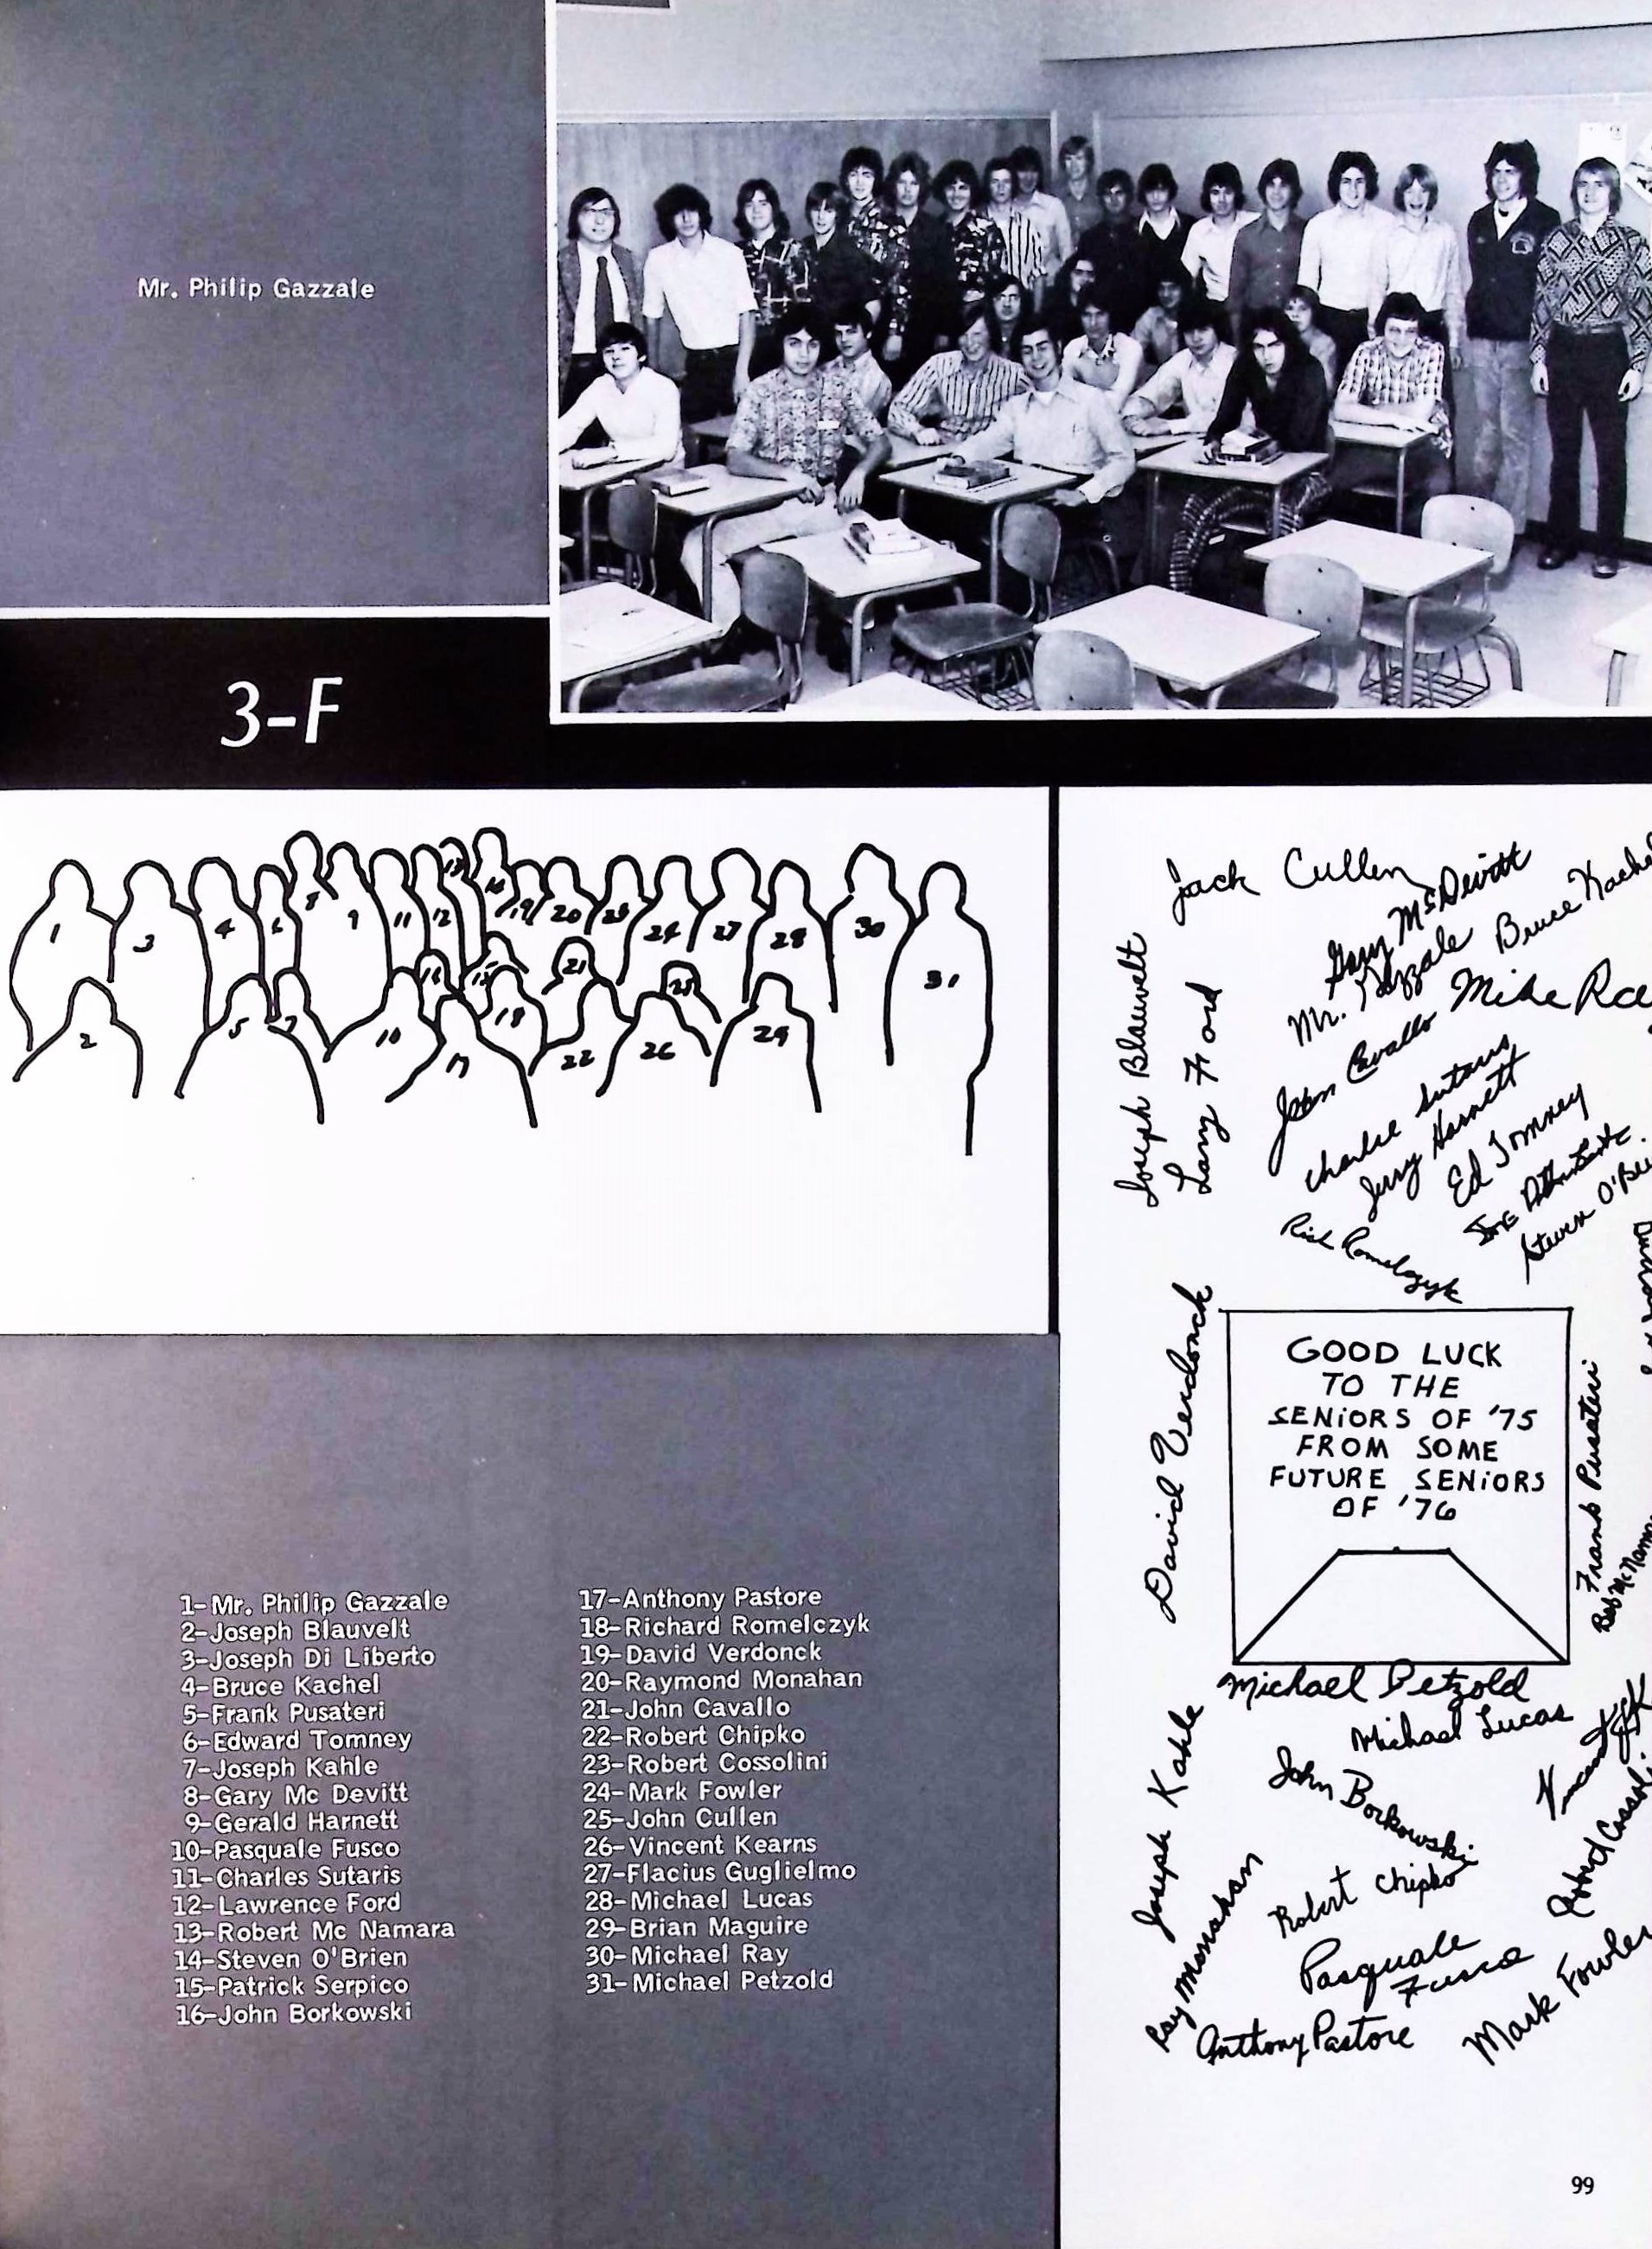 Mr. Philip Gazzale
3-F
1 3 4 6 8 9 11 12 13 14 19 20 23 24 27 28 30 31
2 5 7 10 16 15 17 18 21 22 25 26 29
Jack Cullen
Gary McDevitt
Mr. Gazzale
Bruce Kachel
Joseph Blauvelt
Larry Ford
John Cavallo
Mike Ray
Charlie Sutaris
Jerry Harnett
Ed Tomney
Steven O'Brien
Rich Romelczyk
David Verdonck
GOOD LUCK
TO THE
SENIORS OF '75
FROM SOME
FUTURE SENIORS
OF '76
Frank Pusateri
Bob McNam
Michael Petzold
Michael Lucas
Joseph Kahle
John Borkowski
Vincent
Robert Cossoli
Ray Monahan
Robert Chipko
Pasquale
Fusco
Mark Fowler
Anthony Pastore
1-Mr. Philip Gazzale
2-Joseph Blauvelt
3-Joseph Di Liberto
4-Bruce Kachel
5-Frank Pusateri
6-Edward Tomney
7-Joseph Kahle
8-Gary Mc Devitt
9-Gerald Harnett
10-Pasquale Fusco
11-Charles Sutaris
12-Lawrence Ford
13-Robert Mc Namara
14-Steven O'Brien
15-Patrick Serpico
16-John Borkowski
17-Anthony Pastore
18-Richard Romelczyk
19-David Verdonck
20-Raymond Monahan
21-John Cavallo
22-Robert Chipko
23-Robert Cossolini
24-Mark Fowler
25-John Cullen
26-Vincent Kearns
27-Flacius Guglielmo
28-Michael Lucas
29-Brian Maguire
30-Michael Ray
31-Michael Petzold
99